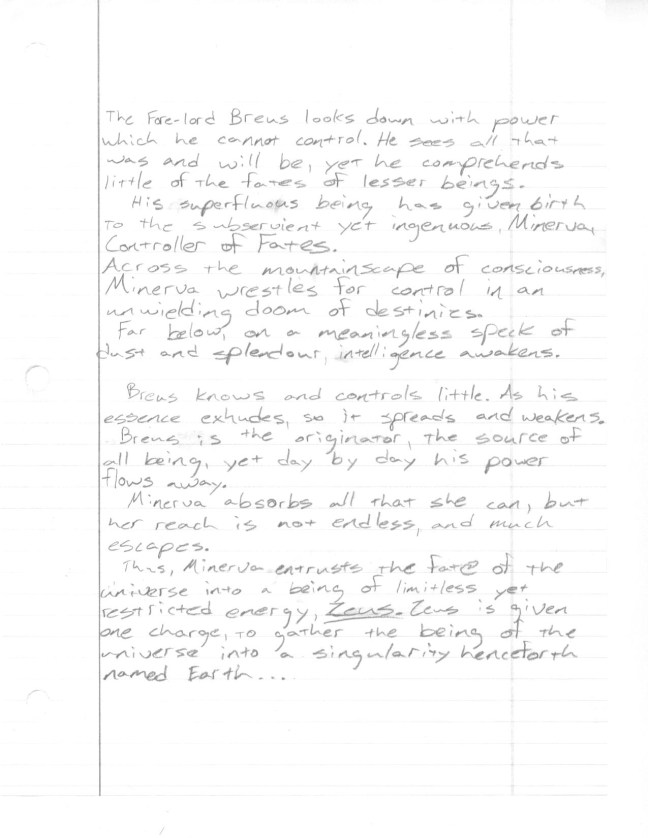 The Fore-lord Breus looks down with power
which he cannot control. He sees all that
was and will be, yet he comprehends
little of the fates of lesser beings.
His superfluous being has given birth
to the subservient yet ingenuous, Minerva,
Controller of Fates.
Across the mountainscape of consciousness,
Minerva wrestles for control in an
unwielding doom of destinies.
Far below, on a meaningless speck of
dust and splendour, intelligence awakens.
Breus knows and controls little. As his
essence exhudes, so it spreads and weakens.
Breus is the originator, the source of
all being, yet day by day his power
flows away.
Minerva absorbs all that she can, but
her reach is not endless, and much
escapes.
Thus, Minerva entrusts the fate of the
universe into a being of limitless yet
restricted energy, Zeus. Zeus is given
one charge, to gather the being of the
universe into a singularity henceforth
named Earth...